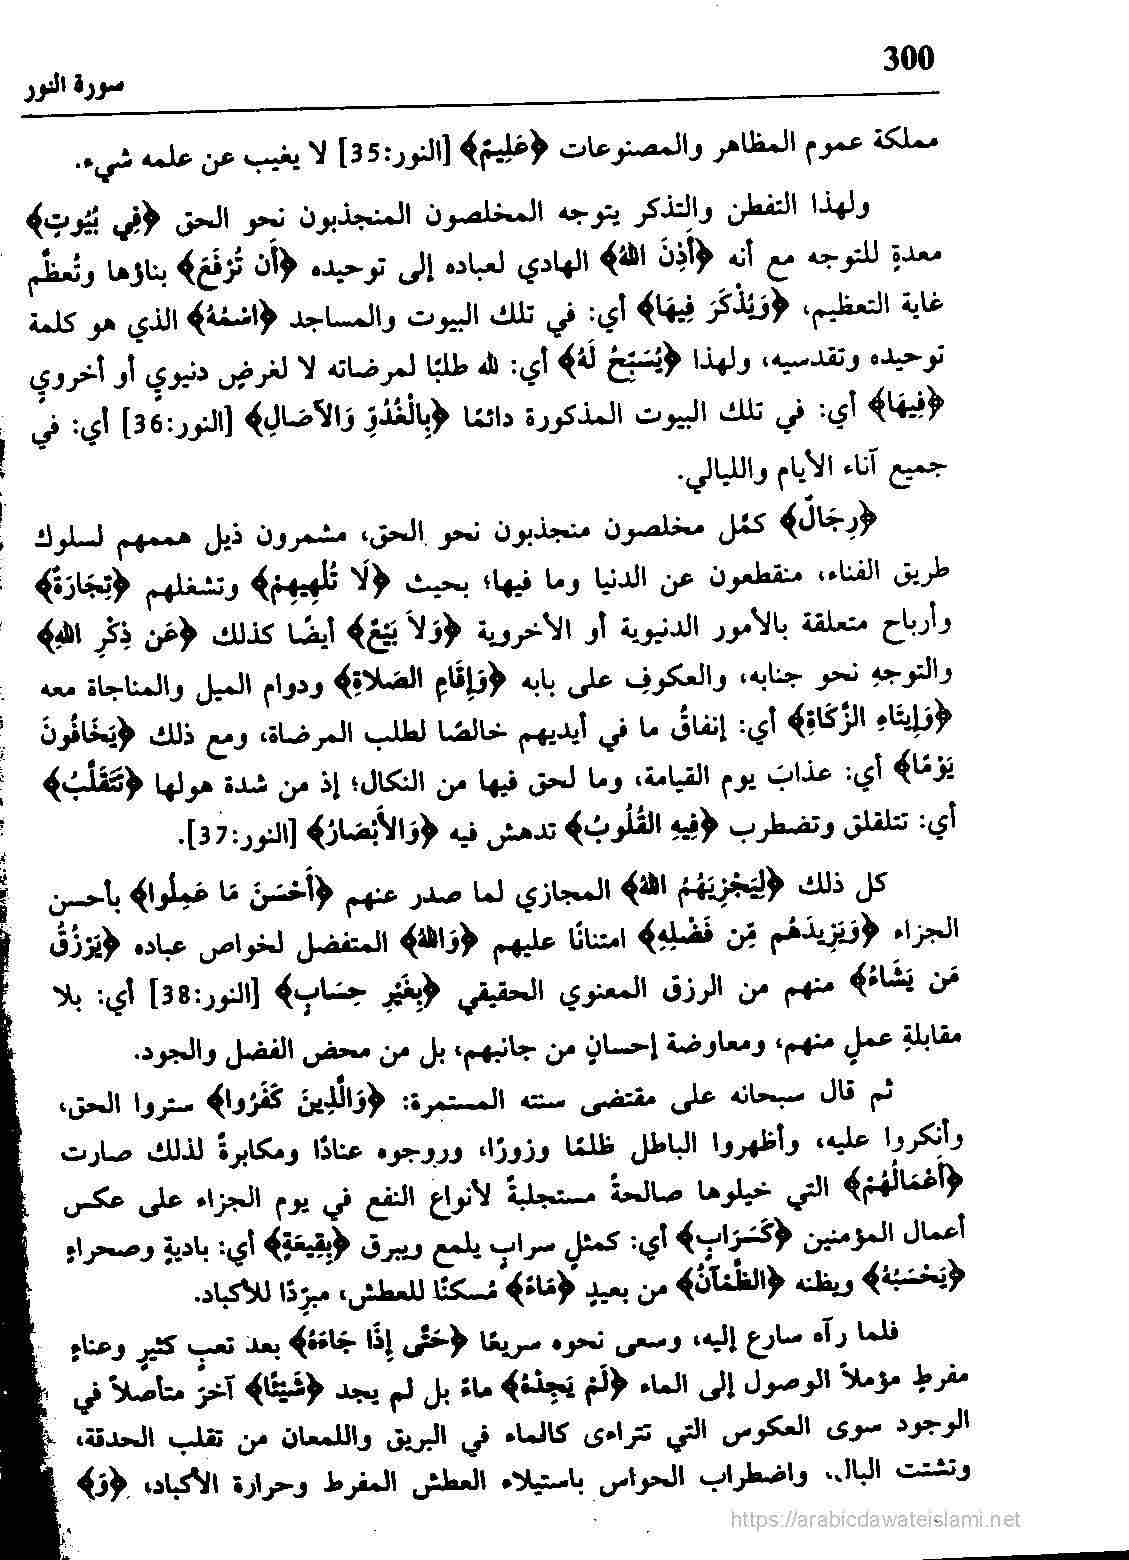 300
سورة النور
مملكة عموم المظاهر والمصنوعات ﴿عَلِيمٌ﴾ [النور:35] لا يغيب عن علمه شيء.
ولهذا التفطن والتذكر يتوجه المخلصون المنجذبون نحو الحق ﴿فِي بُيُوتٍ﴾
معدةٍ للتوجه مع أنه ﴿أَذِنَ اللهُ﴾ الهادي لعباده إلى توحيده ﴿أَن تُرْفَعَ﴾ بناؤها وتُعظَّم
غاية التعظيم، ﴿وَيُذْكَرَ فِيهَا﴾ أي: في تلك البيوت والمساجد ﴿اسْمُهُ﴾ الذي هو كلمة
توحيده وتقدسيه، ولهذا ﴿يُسَبِّحُ لَهُ﴾ أي: لله طلبًا لمرضاته لا لغرضٍ دنيويٍ أو أخرويٍ
﴿فِيهَا﴾ أي: في تلك البيوت المذكورة دائمًا ﴿بِالْغُدُوِّ وَالآصَالِ﴾ [النور:36] أي: في
جميع آناء الأيام والليالي.
﴿رِجَالٌ﴾ كمَّل مخلصون منجذبون نحو الحق، مشمرون ذيل هممهم لسلوك
طريق الفناء، منقطعون عن الدنيا وما فيها؛ بحيث ﴿لَا تُلْهِيهِمْ﴾ وتشغلهم ﴿تِجَارَةٌ﴾
وأرباح متعلقة بالأمور الدنيوية أو الأخروية ﴿وَلاَ بَيْعٌ﴾ أيضًا كذلك ﴿عَن ذِكْرِ اللهِ﴾
والتوجهِ نحو جنابه، والعكوفِ على بابه ﴿وَإِقَامِ الصَلاةِ﴾ ودوام الميل والمناجاة معه
﴿وَإِيتَاءِ الزَّكَاةِ﴾ أي: إنفاقُ ما في أيديهم خالصًا لطلب المرضاة، ومع ذلك ﴿يَخَافُونَ
يَوْمًا﴾ أي: عذابَ يوم القيامة، وما لحق فيها من النكال؛ إذ من شدة هولها ﴿تَتَقَلَّبُ﴾
أي: تتلقلق وتضطرب ﴿فِيهِ القُلُوبُ﴾ تدهش فيه ﴿وَالأَبْصَارُ﴾ [النور:37].
كل ذلك ﴿لِيَجْزِيَهُمُ اللهُ﴾ المجازي لما صدر عنهم ﴿أَحْسَنَ مَا عَمِلُوا﴾ بأحسن
الجزاء ﴿وَيَزِيدَهُم مِّن فَضْلِهِ﴾ امتنانًا عليهم ﴿وَاللهُ﴾ المتفضل لخواص عباده ﴿يَرْزُقُ
مَن يَشَاءُ﴾ منهم من الرزق المعنوي الحقيقي ﴿بِغَيْرِ حِسَابٍ﴾ [النور:38] أي: بلا
مقابلةِ عملٍ منهم، ومعاوضة إحسانٍ من جانبهم، بل من محض الفضل والجود.
ثم قال سبحانه على مقتضى سنته المستمرة: ﴿وَالَّذِينَ كَفَرُوا﴾ ستروا الحق،
وأنكروا عليه، وأظهروا الباطل ظلمًا وزورًا، وروجوه عنادًا ومكابرةً لذلك صارت
﴿أَعْمَالُهُمْ﴾ التي خيلوها صالحةً مستجلبةً لأنواع النفع في يوم الجزاء على عكس
أعمال المؤمنين ﴿كَسَرَابٍ﴾ أي: كمثلِ سرابٍ يلمع ويبرق ﴿بِقِيعَةٍ﴾ أي: باديةٍ وصحراءٍ
﴿يَحْسَبُهُ﴾ ويظنه ﴿الظَّمْآنُ﴾ من بعيدٍ ﴿مَاءً﴾ مُسكنًا للعطش، مبرِّدًا للأكباد.
فلما رآه سارع إليه، وسعى نحوه سريعًا ﴿حَتَّى إِذَا جَاءَهُ﴾ بعد تعبٍ كثيرٍ وعناءٍ
مفرطٍ مؤملاً الوصول إلى الماء ﴿لَمْ يَجِدْهُ﴾ ماءً بل لم يجد ﴿شَيْئًا﴾ آخرَ متأصلاً في
الوجود سوى العكوس التي تتراءى كالماء في البريق واللمعان من تقلب الحدقة،
وتشتت البال، واضطراب الحواس باستيلاء العطش المفرط وحرارة الأكباد، ﴿وَ﴾
https://arabicdawateislami.net